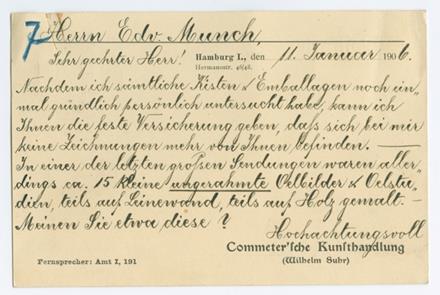 7
Herrn Edv. Munch,
Sehr geehrter Herr! Hamburg I., den 11. Januar 1906.
Hermannstr. 46/48.
Nachdem ich sämtliche Kisten & Emballagen noch ein"
mal gründlich persönlich untersucht habe, kann ich
Ihnen die feste Versicherung geben, daß sich bei mir
keine Zeichnungen mehr von Ihnen befinden. —
In einer der letzten großen Sendungen waren aller"
dings ca. 15 kleine ungerahmte Oelbilder & Oelstu"
dien, teils auf Leinewand, teils auf Holz gemalt. —
Meinen Sie etwa diese?
Hochachtungsvoll
Commeter'sche Kunsthandlung
(Wilhelm Suhr)
Fernsprecher: Amt I, 191